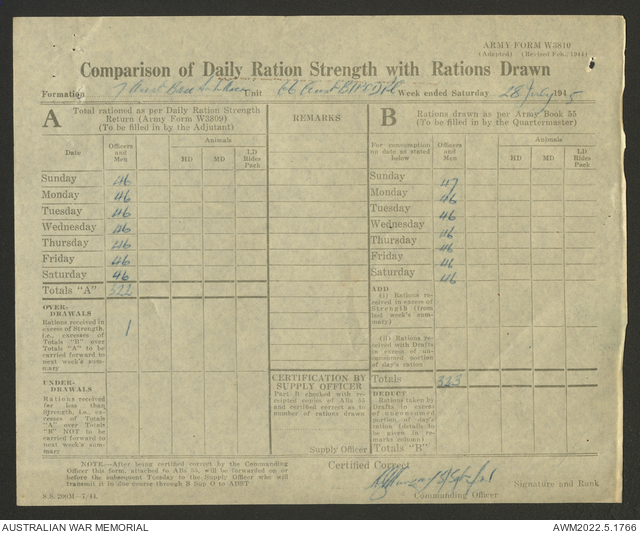 ARMY FORM W3810
(Adapted) (Revised Feb., 1944)
Comparison of Daily Ration Strength with Rations Drawn
Formation 7 Aust Base Sub Area Unit 66 Aust Week ended Saturday 28 July 1945
A Total rationed as per Daily Ration Strength
Return (Army Form W3809)
(To be filled in by the Adjutant)
Date
Officers and Men
Animals
HD
MD
LD Rides Pack
Sunday 46
Monday 46
Tuesday 46
Wednesday 46
Thursday 46
Friday 46
Saturday 46
Totals "A" 322
OVER-
DRAWALS
Rations received in
excess of Strength,
i.e., excesses of
Totals "B" over
Totals "A" to be
carried forward to
next week's sum-
mary
1
UNDER-
DRAWALS
Rations received
far less than
Strength, i.e., ex-
cesses of Totals
"A" over Totals
"B" NOT to be
carried forward to
next week's sum-
mary
REMARKS
CERTIFICATION BY
SUPPLY OFFICER
Part B checked with re-
ceipted copies of ABs 55
and certified correct as to
number of rations drawn
Supply Officer
B Rations drawn as per Army Book 55
(To be filled in by the Quartermaster)
For consumption
on date as stated
below
Officers and Men
Animals
HD
MD
LD Rides Pack
Sunday 47
Monday 46
Tuesday 46
Wednesday 46
Thursday 46
Friday 46
Saturday 46
ADD
(i) Rations re-
ceived in excess of
Strength (from
last week's sum-
mary)
(ii) Rations re-
ceived with Drafts
in excess of un-
consumed portion
of day's ration
Totals 323
DEDUCT
Rations taken by
Drafts in excess
of unconsumed
portion of day's
ration (details to
be given in re-
marks column)
Totals "B"
NOTE.—After being certified correct by the Commanding
Officer this form, attached to ABs 55, will be forwarded on or
before the subsequent Tuesday to the Supply Officer who will
transmit it in due course through B Sup O to ADST
S.S. 200M—7/44.
Certified Correct
Commanding Officer
Signature and Rank
AUSTRALIAN WAR MEMORIAL
AWM2022.5.1766